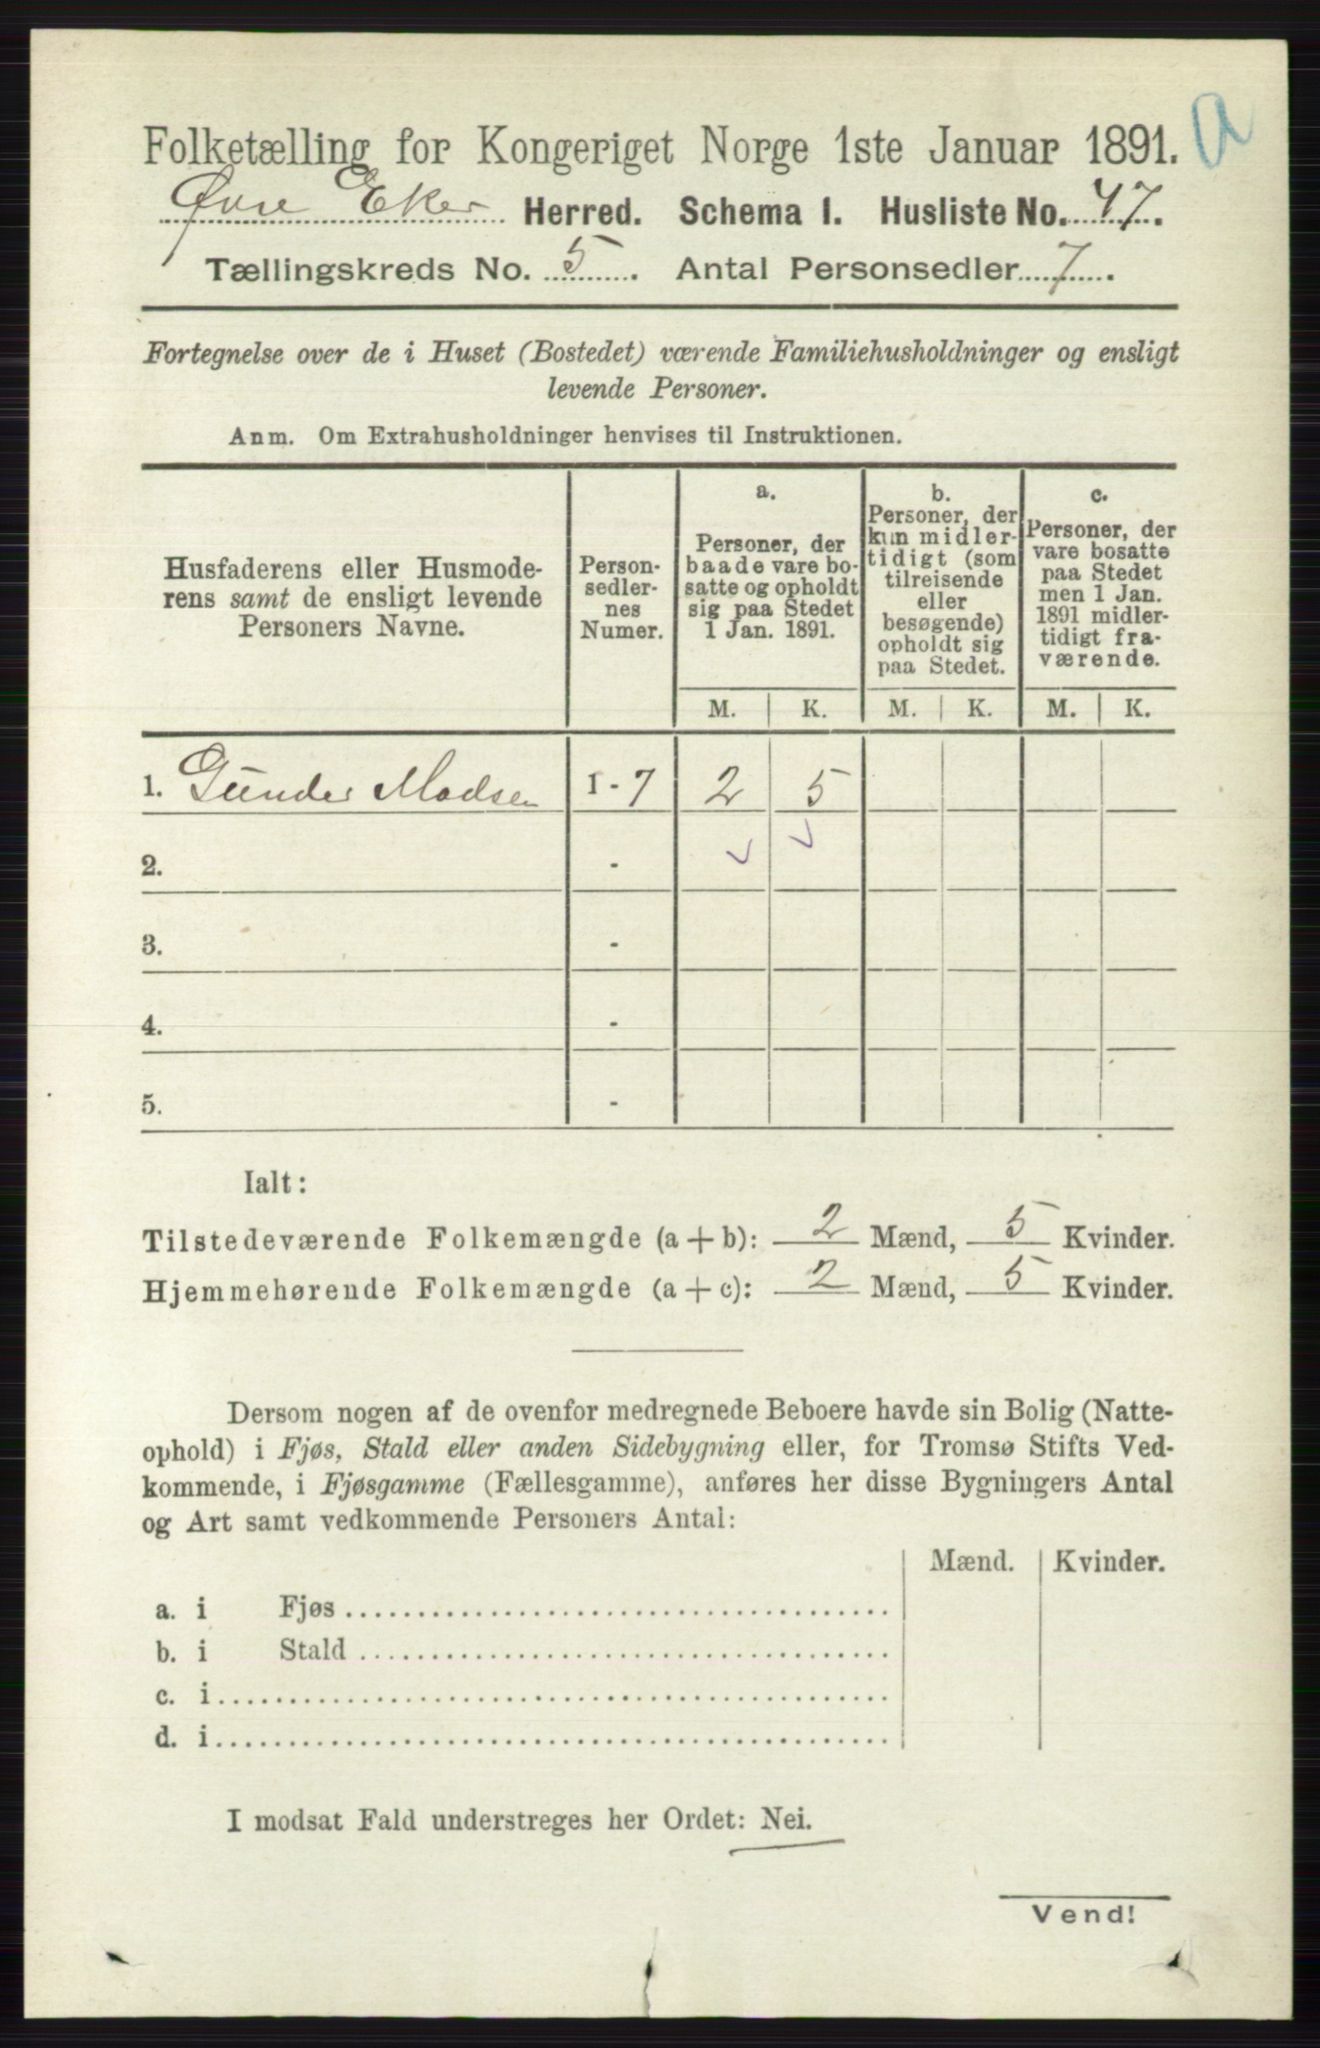 a
Folketælling for Kongeriget Norge 1ste Januar 1891.
Øvre Eker Herred. Schema I. Husliste No. 47.
Tællingskreds No. 5. Antal Personsedler 7.
Fortegnelse over de i Huset (Bostedet) værende Familiehusholdninger og ensligt
levende Personer.
Anm. Om Extrahusholdninger henvises til Instruktionen.
Husfaderens eller Husmode-
rens samt de ensligt levende
Personers Navne.
Person-
sedler-
nes
Numer.
a.
Personer, der
baade vare bo-
satte og opholdt
sig paa Stedet
1 Jan. 1891.
b.
Personer, der
kun midler-
tidigt (som
tilreisende
eller
besøgende)
opholdt sig
paa Stedet.
c.
Personer, der
vare bosatte
paa Stedet
men 1 Jan.
1891 midler-
tidigt fra-
værende.
M. K. M. K. M. K.
1. Gunder Madsen 1 - 7 2 5
2. -
3. -
4. -
5. -
Ialt:
Tilstedeværende Folkemængde (a + b): 2 Mænd, 5 Kvinder.
Hjemmehørende Folkemængde (a + c): 2 Mænd, 5 Kvinder.
Dersom nogen af de ovenfor medregnede Beboere havde sin Bolig (Natte-
ophold) i Fjøs, Stald eller anden Sidebygning eller, for Tromsø Stifts Ved-
kommende, i Fjøsgamme (Fællesgamme), anføres her disse Bygningers Antal
og Art samt vedkommende Personers Antal:
Mænd. Kvinder.
a. i Fjøs
b. i Stald
c. i
d. i
I modsat Fald understreges her Ordet: Nei.
Vend!